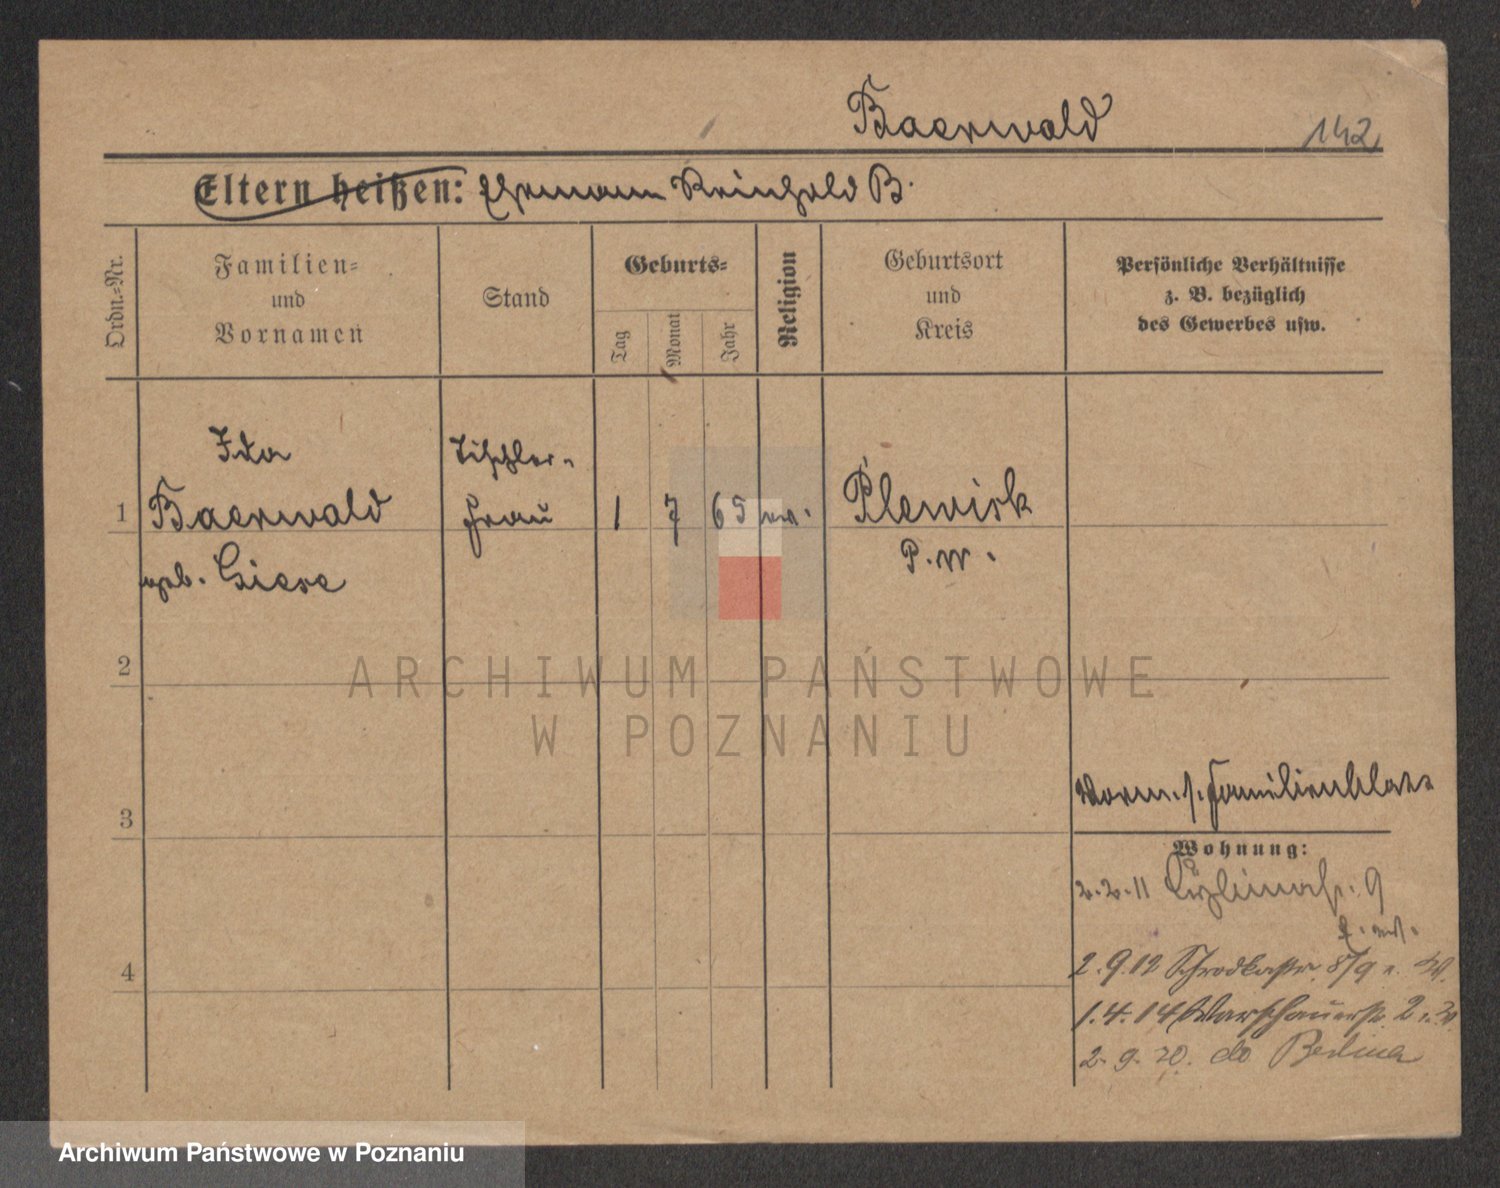 Baerwald
142
Eltern heißen: Ehemann Reinhold B.
Ordn.-Nr.
Familien-
und
Vornamen
Stand
Geburts-
Tag
Monat
Jahr
Religion
Geburtsort
und
Kreis
Persönliche Verhältnisse
z. B. bezüglich
des Gewerbes usw.
Ida
Tischler-
1 Baerwald frau 1 7 65 ev. Plewisk
geb. Giese P. W.
2
ARCHIWUM PAŃSTWOWE
W POZNANIU
3
Vorm. s. Familienblatt
Wohnung:
2.2.11 9
4
2.9.12 Schrodkastr. 8/9
1.4.14 Warschauerstr. 2
2.9.20. do Berlina
Archiwum Państwowe w Poznaniu